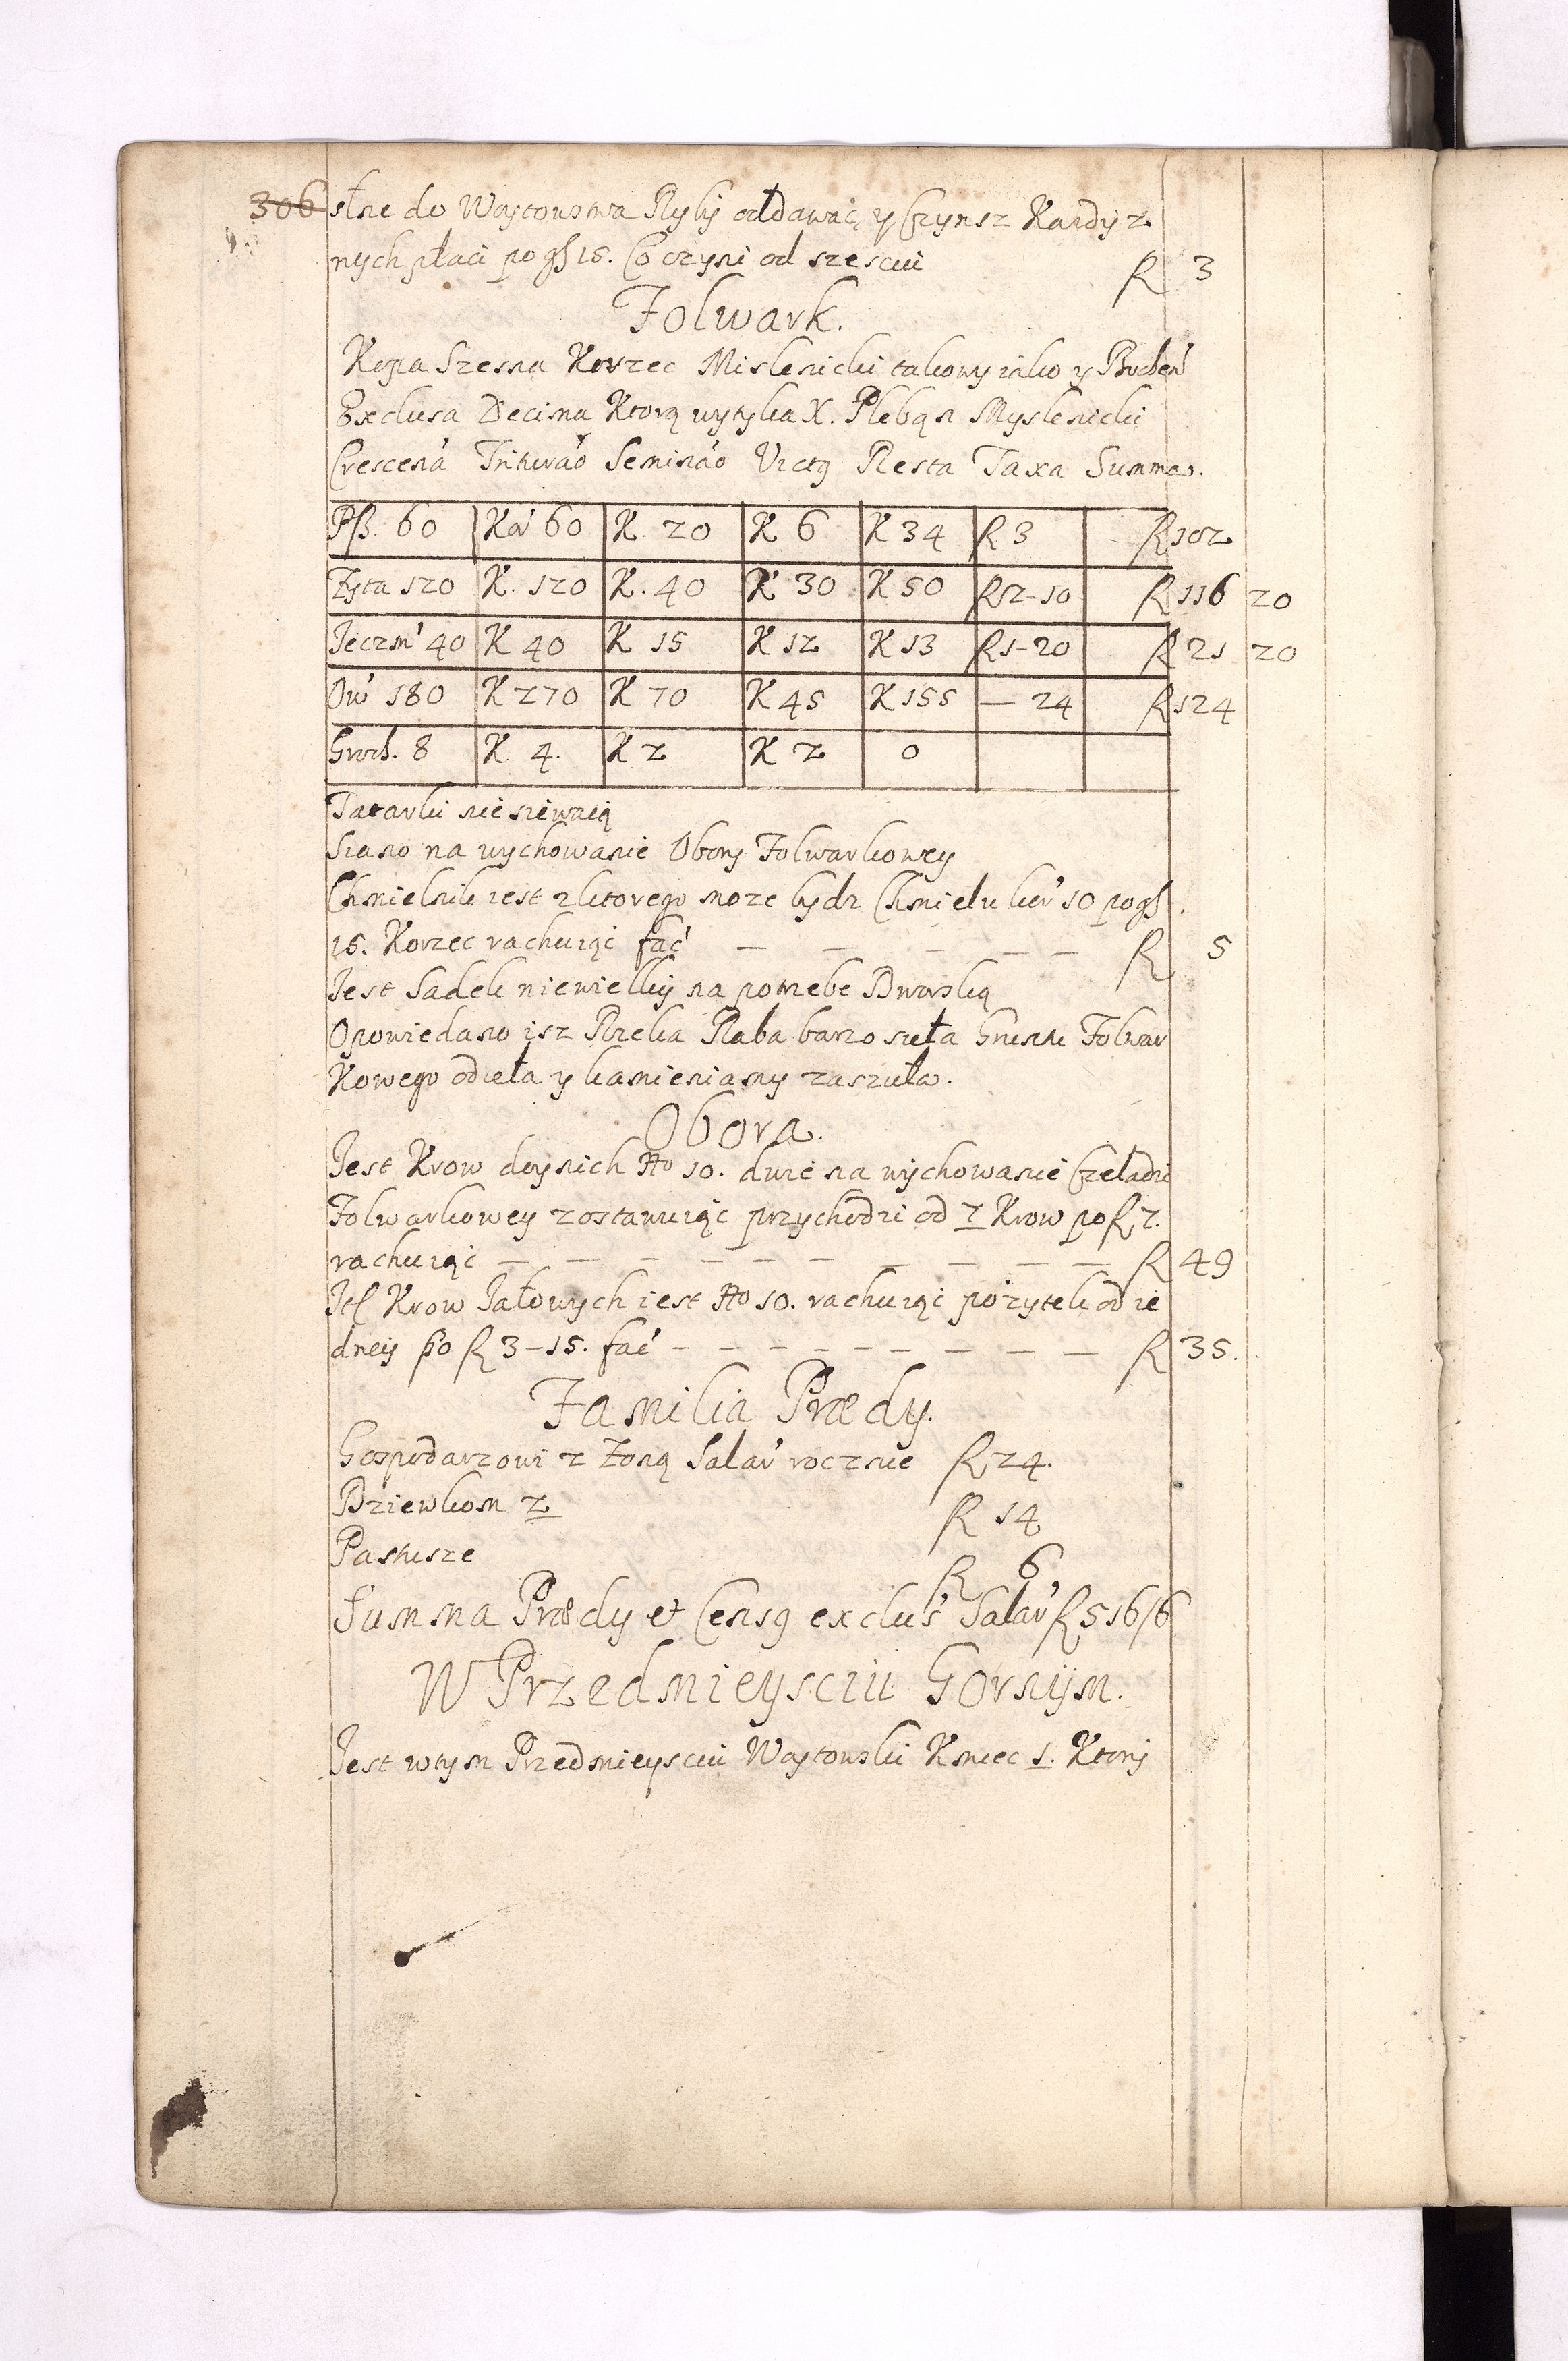 306 słne do Woytowstwa Ryby oddawać, y Czynsz Kazdy z
nych płaci po gß 15. Co czyni od szesciu R 3
Folwark.
Kopa Szesna Korzec Mislenicki takowy iako y Bocheń
Exclusa Decima Ktorą wytyka X. Plebąn Myslenicki
Crescená Trituráo Semináo Victꝰ Resta Taxa Summa.
Pß. 60 Kor' 60 K. 20 K 6 K 34 R 3 R 102
Zyta 120 K. 120 K. 40 K 30 K 50 R 2-10 R 116 20
Jeczm' 40 K 40 K 15 K 12 K 13 R 1-20 R 21 20
Ow' 180 K 270 K 70 K 45 K 155 — 24 R 124
Groch. 8 K 4. K 2 K 2 0
Tatarki nie siewaią
Siano na wychowanie Obory Folwarkowey
Chmielnik iest z ktorego moze bydz Chmielu kor' 10 po gß
15. Korzec rachuiąc fac' — — — — — — R 5
Jest Sadek niewielky na potrzebe Dworską
Opowiedano isz Rzeka Raba barzo sieła Gruntu Folwar
Kowego odieła y kamieniamy zaszuła.
Obora.
Jest Krow doynich No 10. dwie na wychowanie Czeladzi
Folwarkowey zostawuiąc przychodzi od 7 Krow po R 7.
rachuiąc — — — — — — — — — R 49
Itl Krow Jałowych iest No 10. rachuiąc pożytek od ie
dney po R 3-15. fac' — — — — — — — — — R 35.
Familia Prædy.
Gospodarzowi z Zoną Salar' rocznie R 24.
Dziewkom 2 R 14
Pastusze R 6
Summa Prædy et Censꝰ exclus' Salar' R 516/6
W Przedmieysciu Gornijm.
Jest wtym Przedmieysciu Woytowski Kmiec 1. Ktory